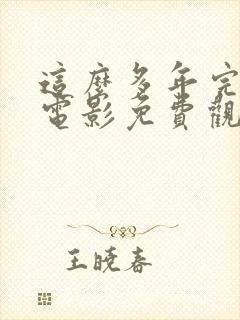 這麼多年完
電影免費觀
王曉春